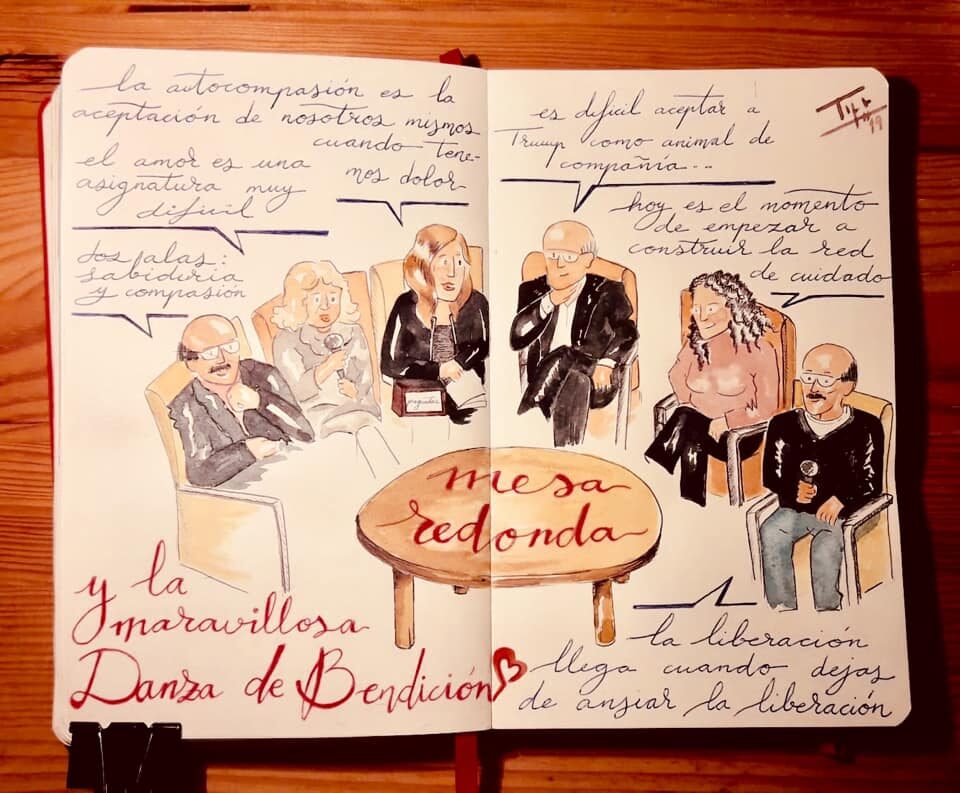 la autocompasión es la
aceptación de nosotros mismos
cuando tene-
mos dolor
el amor es una
asignatura muy
dificil
dos alas:
sabiduria
y compasión
es dificil aceptar a
Trump como animal de
compañía...
19
hoy es el momento
de empezar a
construir la red
de cuidado
preguntas
mesa
redonda
y la
maravillosa
Danza de Bendición
la liberación
llega cuando dejas
de ansiar la liberación